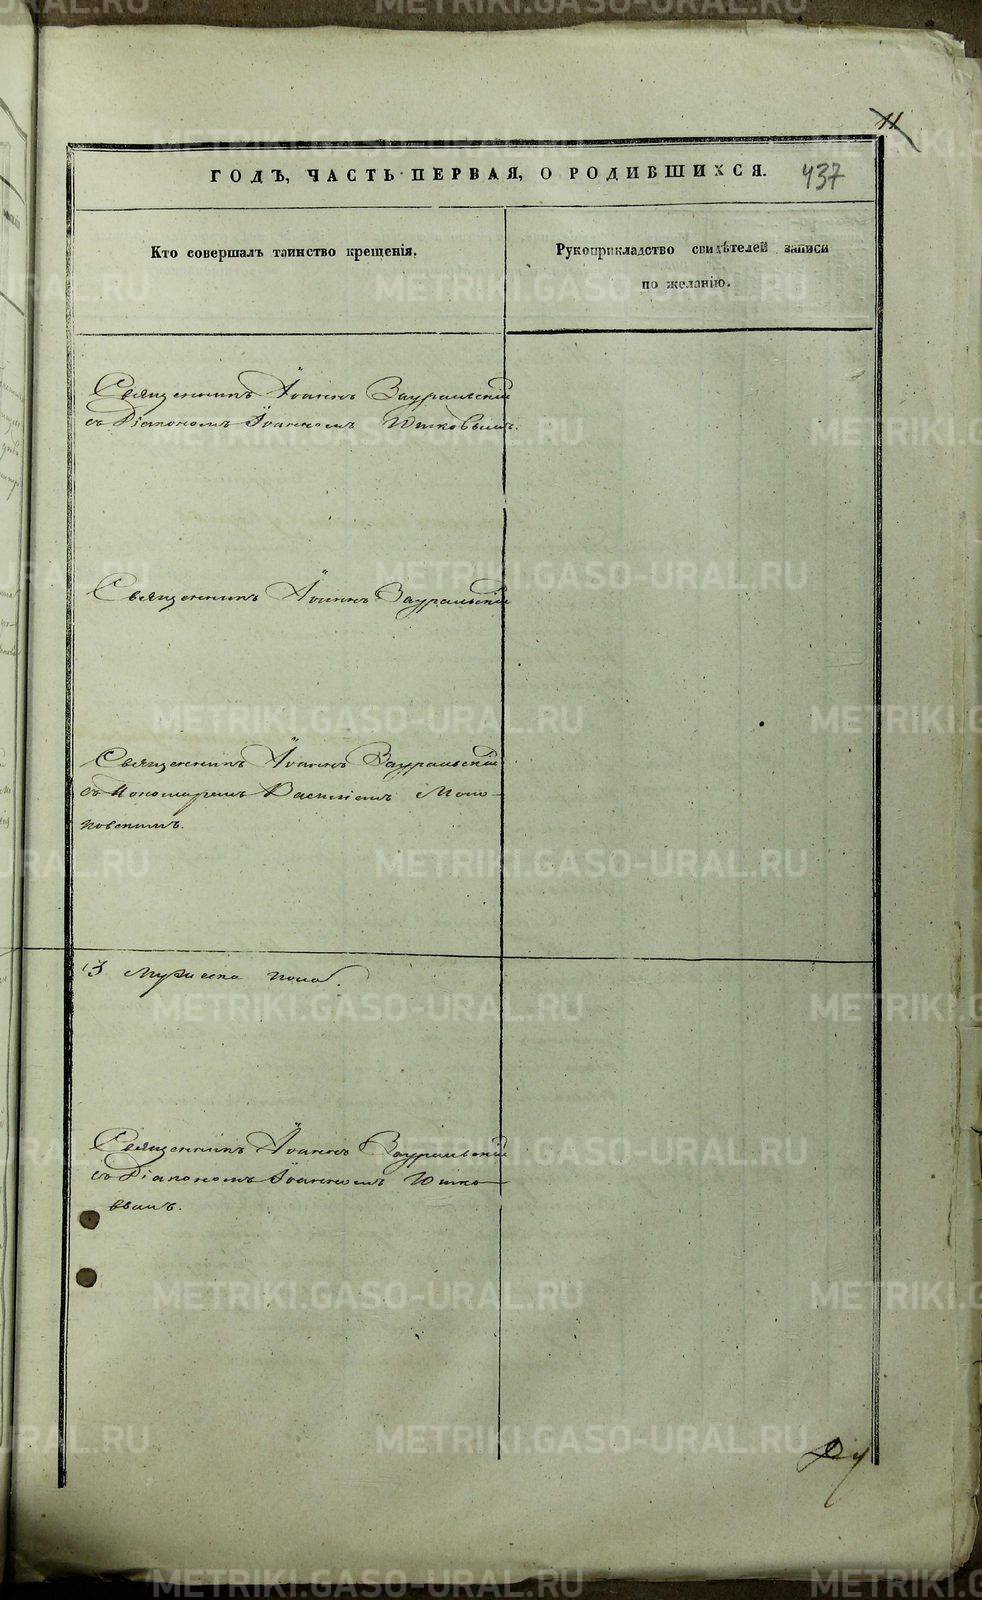 11
ГОДЪ, ЧАСТЬ ПЕРВАЯ, О РОДИВШИХСЯ. 437
Кто совершалъ таинство крещенія.
Рукоприкладство свидѣтелей записи
по желанію.
Священникъ Іоаннъ Зауральскій
съ Діакономъ Іоанномъ
Священникъ Іоаннъ Зауральскій
Священникъ Іоаннъ Зауральскій
съ Пономаремъ Василіемъ
3 мужеска пола.
Священникъ Іоаннъ Зауральскій
съ Діакономъ Іоанномъ
METRIKI.GASO-URAL.RU